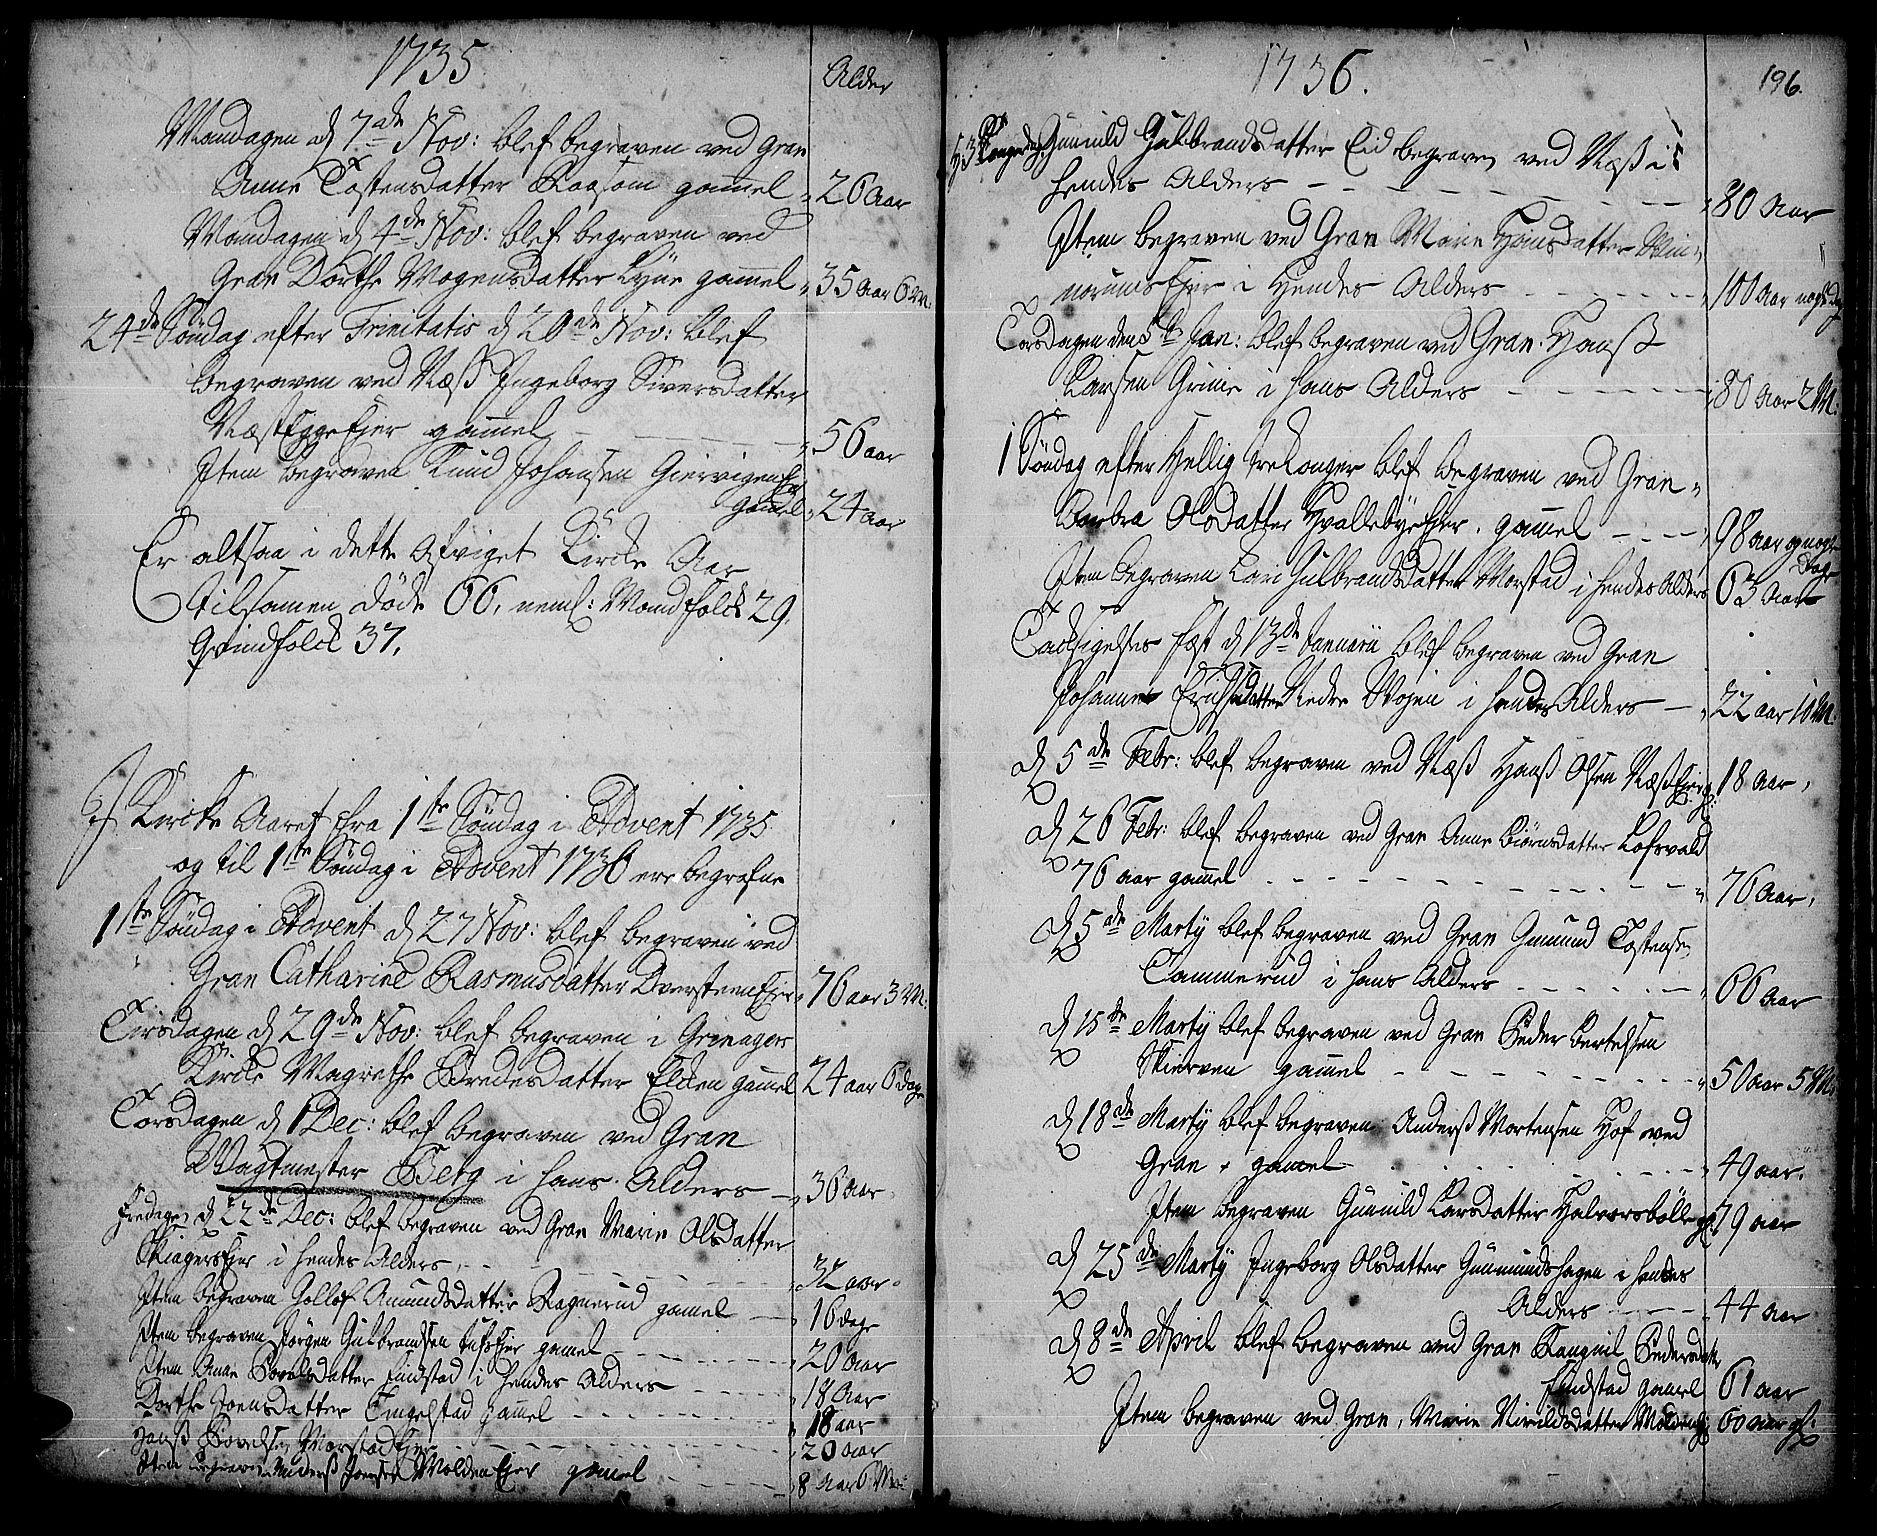 1735
Alder
Mandagen d 7de Nov: blef begraven ved Gran
Anne Tostensdatter Raasom gammel 26 aar
Mandagen d 4de Nov: blef begraven ved
Gran Dorthe Mogensdatter Lyne gammel 35 aar 6 M.
24de Søndag efter Trinitatis d 20de Nov: blef
begraven ved Næss Ingeborg Siversdatter
gammel 56 aar
Item begraven Knud Johansen Giervigen
gammel 24 aar
Er altsaa i dette afviget Kircke Aar
tilsamen døde 66, neml: Mandfolck 29.
Qvindfolck 37.
I Kircke Aaret fra 1ste Søndag i Advent 1735
og til 1ste Søndag i Advent 1736 ere begrafne
1ste Søndag i Advent d 27 Nov: blef begraven ved
Gran Catharine Rasmusdatter Dversteen Eier 76 aar 3 M.
Tirsdagen d 29de Nov: blef begraven i Grinagers
Kircke Magrethe Bredesdatter Elden gamel 24 aar 6 dage
Torsdagen d 1 Dec: blef begraven ved Gran
Wagtmester Berg i hans Alders 36 aar
Fredagen d 22de Dec: blef begraven ved Gran Marie Olsdatter
i hendes Alders 32 aar
Item begraven Golløf Amundsdatter Ragnerud gamel 16 dage
Item begraven Jørgen Gulbrandsen gamel 20 aar
Item Anne Povelsdatter Findstad i hendes Alders 18 aar
Dorthe Joensdatter Tingelstad gamel 18 aar
Hanss Povelsen Morstad Eier 20 aar
Item begraven Anderss Joensen Molden Eier gamel 8 aar 6 M
1736.
196.
Gunnild Gulbrandsdatter Eid begraven ved Næss i
hendes Alders 80 aar
Item begraven ved Gran Marie Hansdatter
i hendes Alders 100 aar
Torsdagen den 5te Jan: blef begraven ved Gran Hanss
Larsen Grinie i hans Alders 80 aar 2 M:
1 Søndag efter Hellig treKonger blef begraven ved Gran
Barbra Olsdatter gammel 98 aar og nogle
dage
Item begraven Kari Gulbrandsdatter Morstad i hendes Alders 63 aar
Tacksigelses fest d 13de Januarii blef begraven ved Gran
Johanne Erichsdatter Nedre Wøjen i hendes Alders 22 aar 10 M.
d 5de Febr: blef begraven ved Næss Hanss Olsen Næss Eier 18 aar,
d 26 Febr: blef begraven ved Gran Anne Biørnsdatter Lofsvald
76 aar gamel 76 aar,
d 5de Martÿ blef begraven ved Gran Gmund Tostensen
Tammerud i hans Alders 66 aar
d 15de Martÿ blef begraven ved Gran Peder Bertelsen
Skierven gammel 50 aar 5 M:
d 18de Martÿ blef begraven Anderss Mortensen Hof ved
Gran gamel 49 aar.
Item begraven Gunnild Larsdatter Halvorsbølle 79 aar
d 25de Martÿ Ingeborg Olsdatter Gunmundshagen i hendes
Alders 44 aar
d 8de April blef begraven ved Gran Rangnil Pedersdatter
Findstad gamel 61 aar
Item begraven ved Gran Marie 60 aar